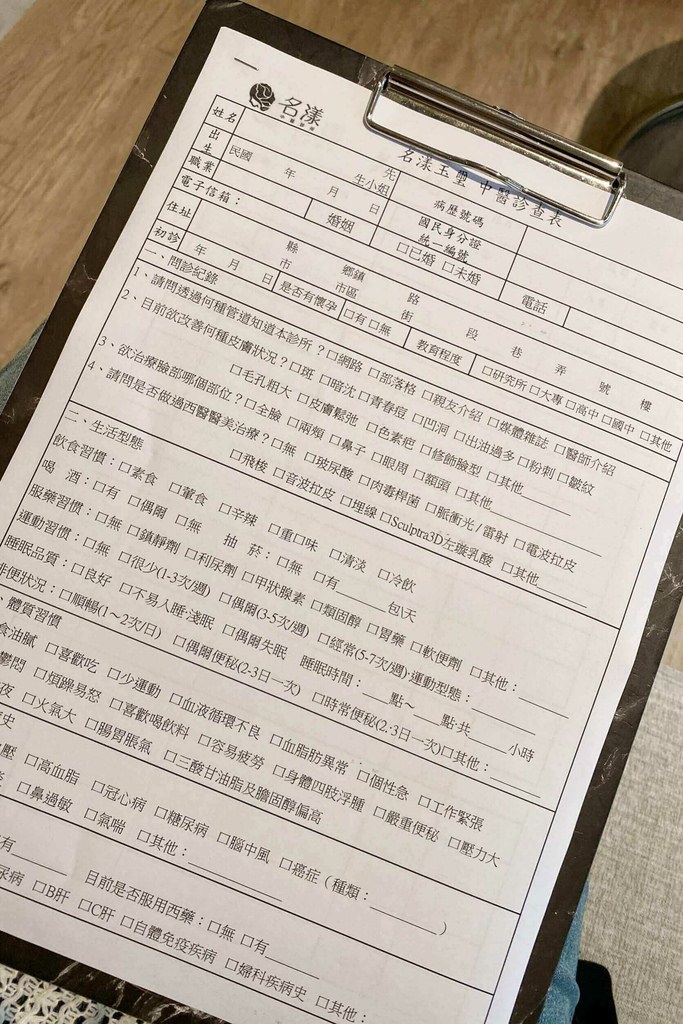 名漾
名漾玉璽 中醫診查表
姓名 先生小姐 病歷號碼
出生 民國 年 月 日 國民身分證統一編號
職業 婚姻 □已婚 □未婚 電話
電子信箱：
住址 縣市 鄉鎮市區 路街 段 巷 弄 號 樓
初診 年 月 日 是否有懷孕 □有 □無 教育程度 □研究所 □大專 □高中 □國中 □其他
一、問診紀錄
1、請問透過何種管道知道本診所？□網路 □部落格 □親友介紹 □媒體雜誌 □醫師介紹
2、目前欲改善何種皮膚狀況？□斑 □暗沈 □青春痘 □凹洞 □出油過多 □粉刺 □皺紋
□毛孔粗大 □皮膚鬆弛 □色素疤 □修飾臉型 □其他
3、欲治療臉部哪個部位？□全臉 □兩頰 □鼻子 □眼周 □額頭 □其他
4、請問是否做過西醫醫美治療？□無 □玻尿酸 □肉毒桿菌 □脈衝光/雷射 □電波拉皮
□飛梭 □音波拉皮 □埋線 □Sculptra3D左旋乳酸 □其他
二、生活型態
飲食習慣：□素食 □葷食 □辛辣 □重口味 □清淡 □冷飲
喝 酒：□有 □偶爾 □無 抽 菸：□無 □有 包\天
服藥習慣：□無 □鎮靜劑 □利尿劑 □甲狀腺素 □類固醇 □胃藥 □軟便劑 □其他：
運動習慣：□無 □很少(1-3次/週) □偶爾(3-5次/週) □經常(5-7次/週)‧運動型態：
睡眠品質：□良好 □不易入睡‧淺眠 □偶爾失眠 睡眠時間： 點~ 點‧共 小時
便狀況：□順暢(1～2次/日) □偶爾便秘(2-3日一次) □時常便秘(2.3日一次)□其他：
、體質習慣
食油膩 □喜歡吃 □少運動 □血液循環不良 □血脂肪異常 □個性急 □工作緊張
鬱悶 □煩躁易怒 □喜歡喝飲料 □容易疲勞 □身體四肢浮腫 □嚴重便秘 □壓力大
夜 □火氣大 □腸胃脹氣 □三酸甘油脂及膽固醇偏高
史
壓 □高血脂 □冠心病 □糖尿病 □腦中風 □癌症（種類： ）
□鼻過敏 □氣喘 □其他：
有 目前是否服用西藥：□無 □有
尿病 □B肝 □C肝 □自體免疫疾病 □婦科疾病史 □其他：